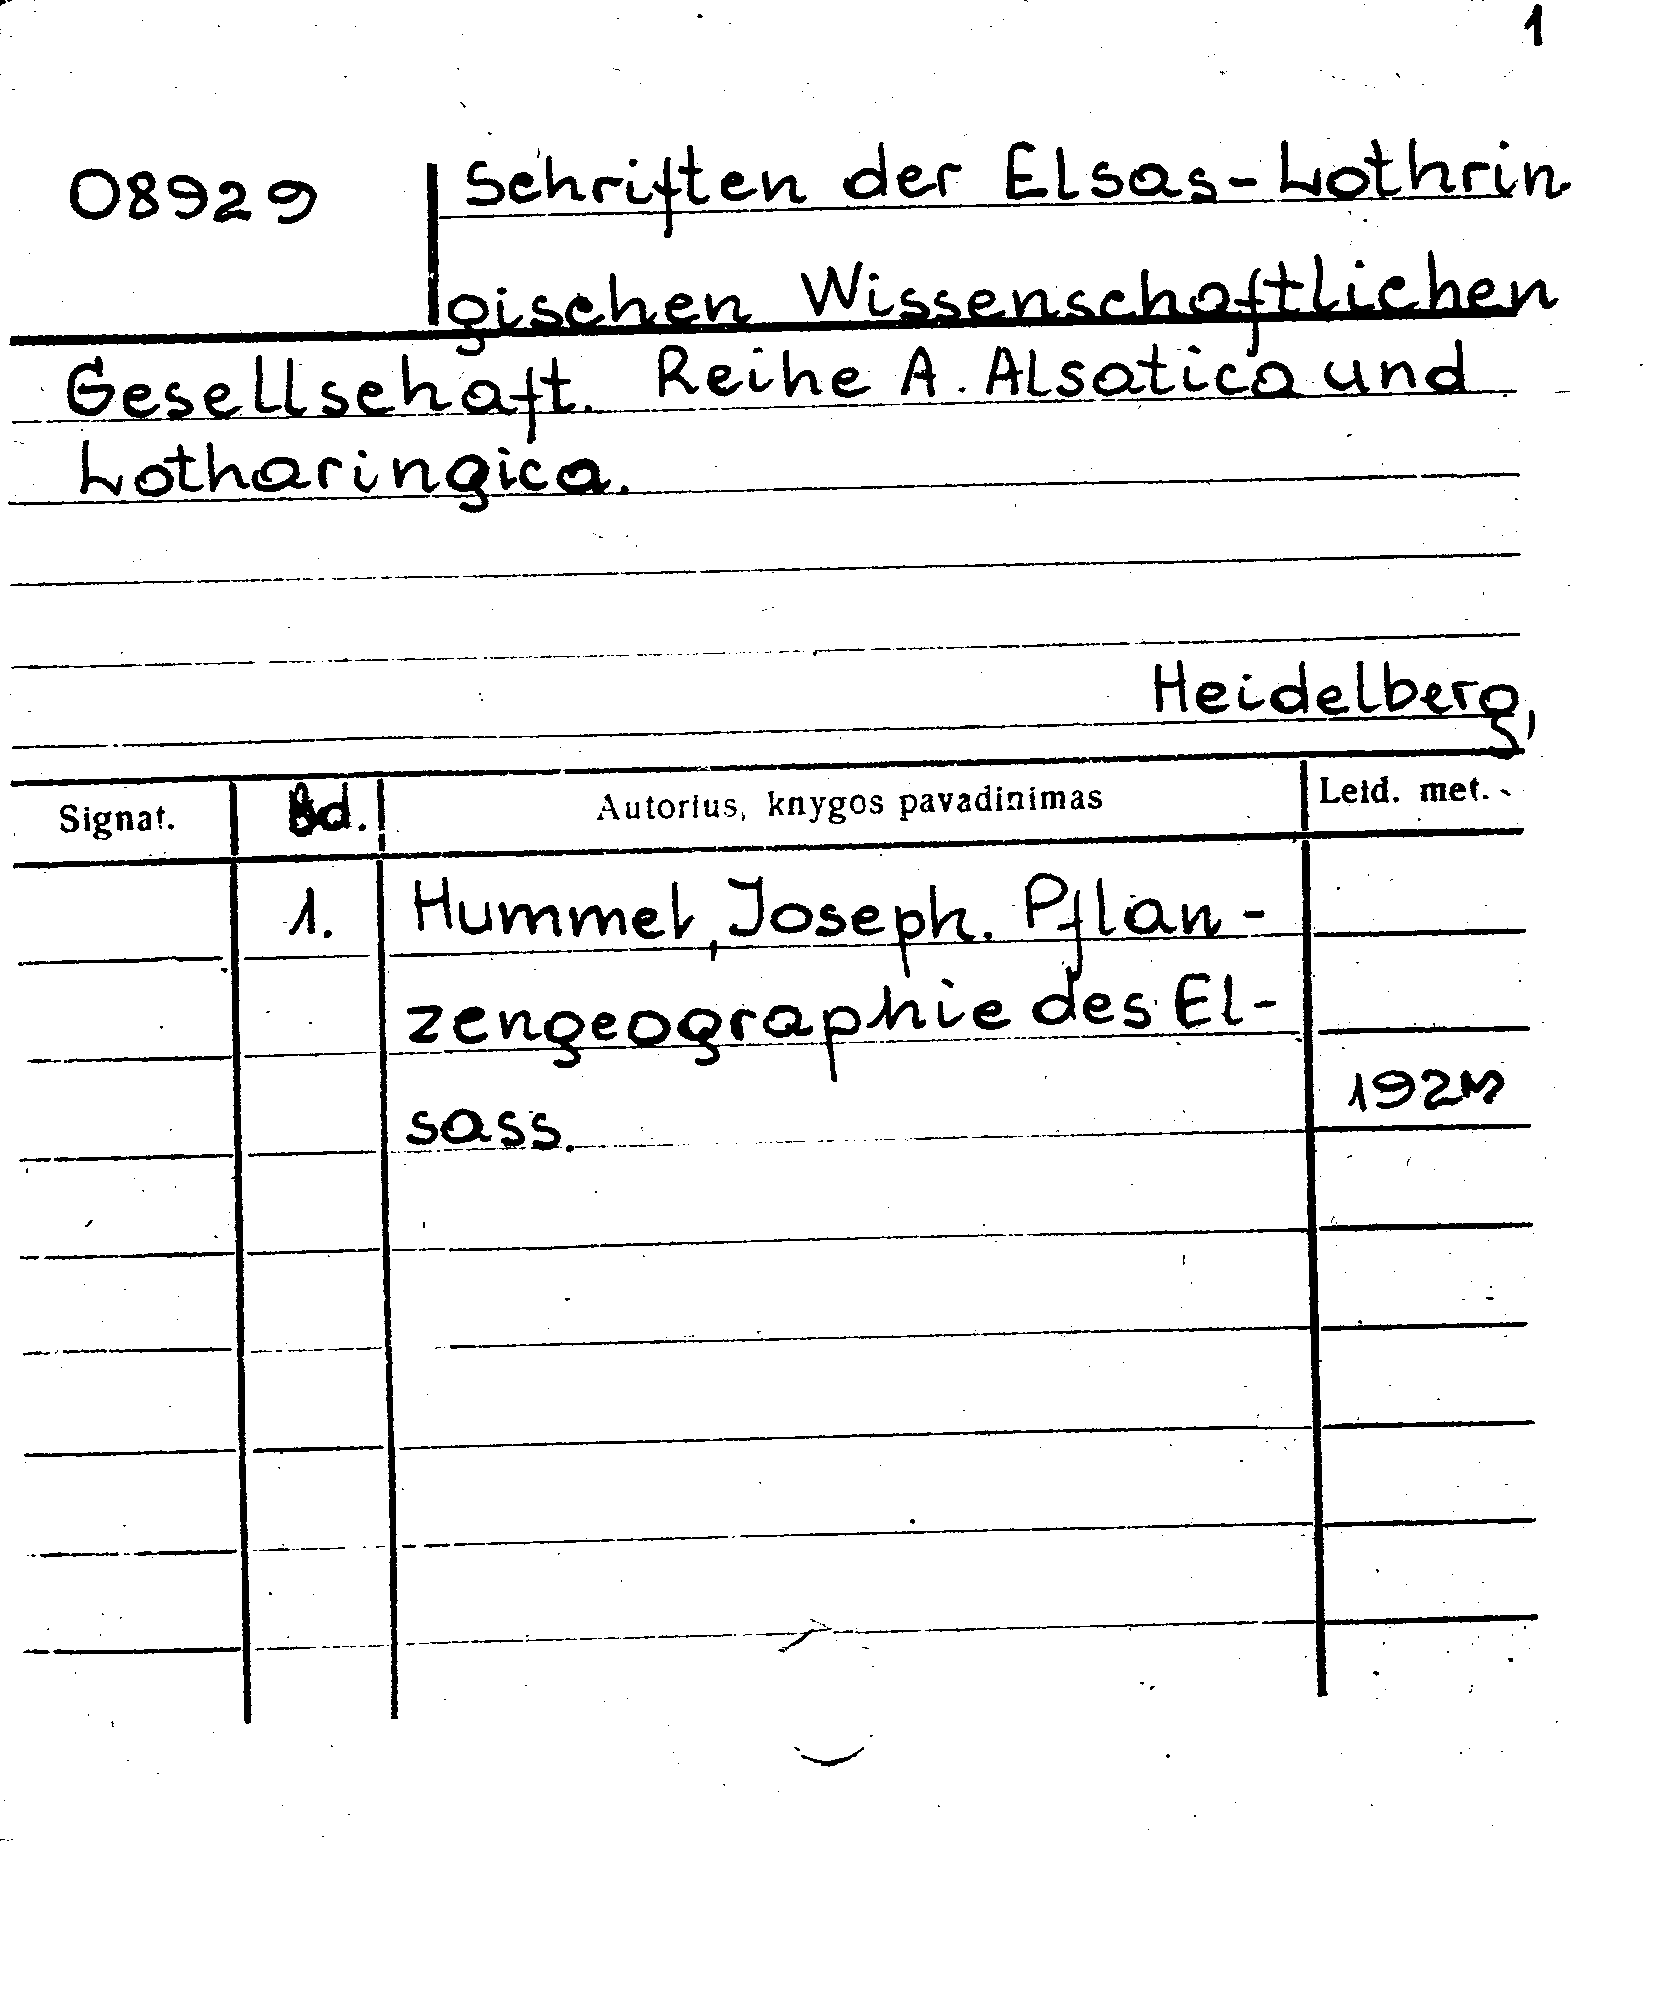 1
08929 Schriften der Elsas-Lothrin
gischen Wissenschaftlichen
Gesellschaft. Reihe A. Alsatica und
Lotharingica.
Heidelberg,
Signat. Bd. Autorius, knygos pavadinimas Leid. met.
1. Hummel, Joseph. Pflan-
zengeographie des El-
sass.